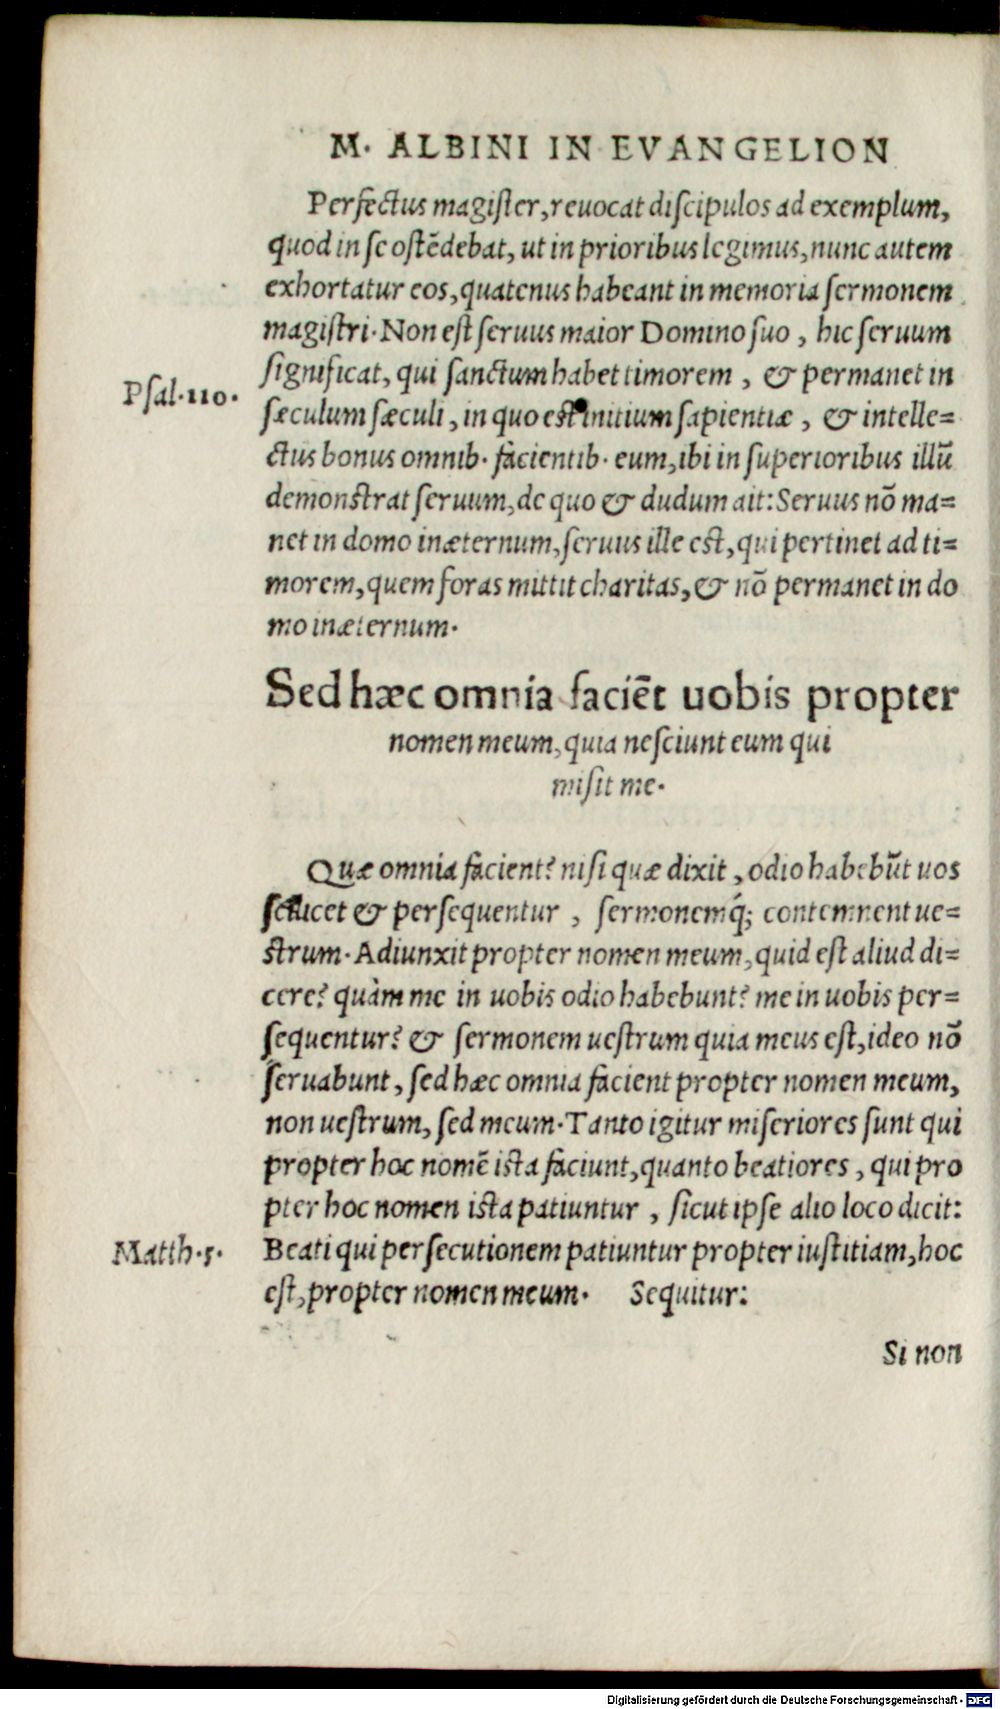 M. ALBINI IN EVANGELION
Perfectus magister, reuocat discipulos ad exemplum,
quod in se ostēdebat, ut in prioribus legimus, nunc autem
exhortatur eos, quatenus habeant in memoria sermonem
magistri. Non est seruus maior Domino suo, hic seruum
significat, qui sanctum habet timorem, & permanet in
Psal. 110.
sæculum sæculi, in quo est initium sapientiæ, & intelle=
ctus bonus omnib. facientib. eum, ibi in superioribus illū
demonstrat seruum, de quo & dudum ait: Seruus nō ma=
net in domo inæternum, seruus ille est, qui pertinet ad ti=
morem, quem foras mittit charitas, & nō permanet in do
mo inæternum.
Sed hæc omnia faciēt uobis propter
nomen meum, quia nesciunt eum qui
misit me.
Quæ omnia facient? nisi quæ dixit, odio habebūt uos
scilicet & persequentur, sermonemq́; contemnent ue=
strum. Adiunxit propter nomen meum, quid est aliud di=
cere? quàm me in uobis odio habebunt? me in uobis per=
sequentur? & sermonem uestrum quia meus est, ideo nō
seruabunt, sed hæc omnia facient propter nomen meum,
non uestrum, sed meum. Tanto igitur miseriores sunt qui
propter hoc nomē ista faciunt, quanto beatiores, qui pro
pter hoc nomen ista patiuntur, sicut ipse alio loco dicit:
Matth. 5.
Beati qui persecutionem patiuntur propter iustitiam, hoc
est, propter nomen meum. Sequitur:
Si non
Digitalisierung gefördert durch die Deutsche Forschungsgemeinschaft - DFG